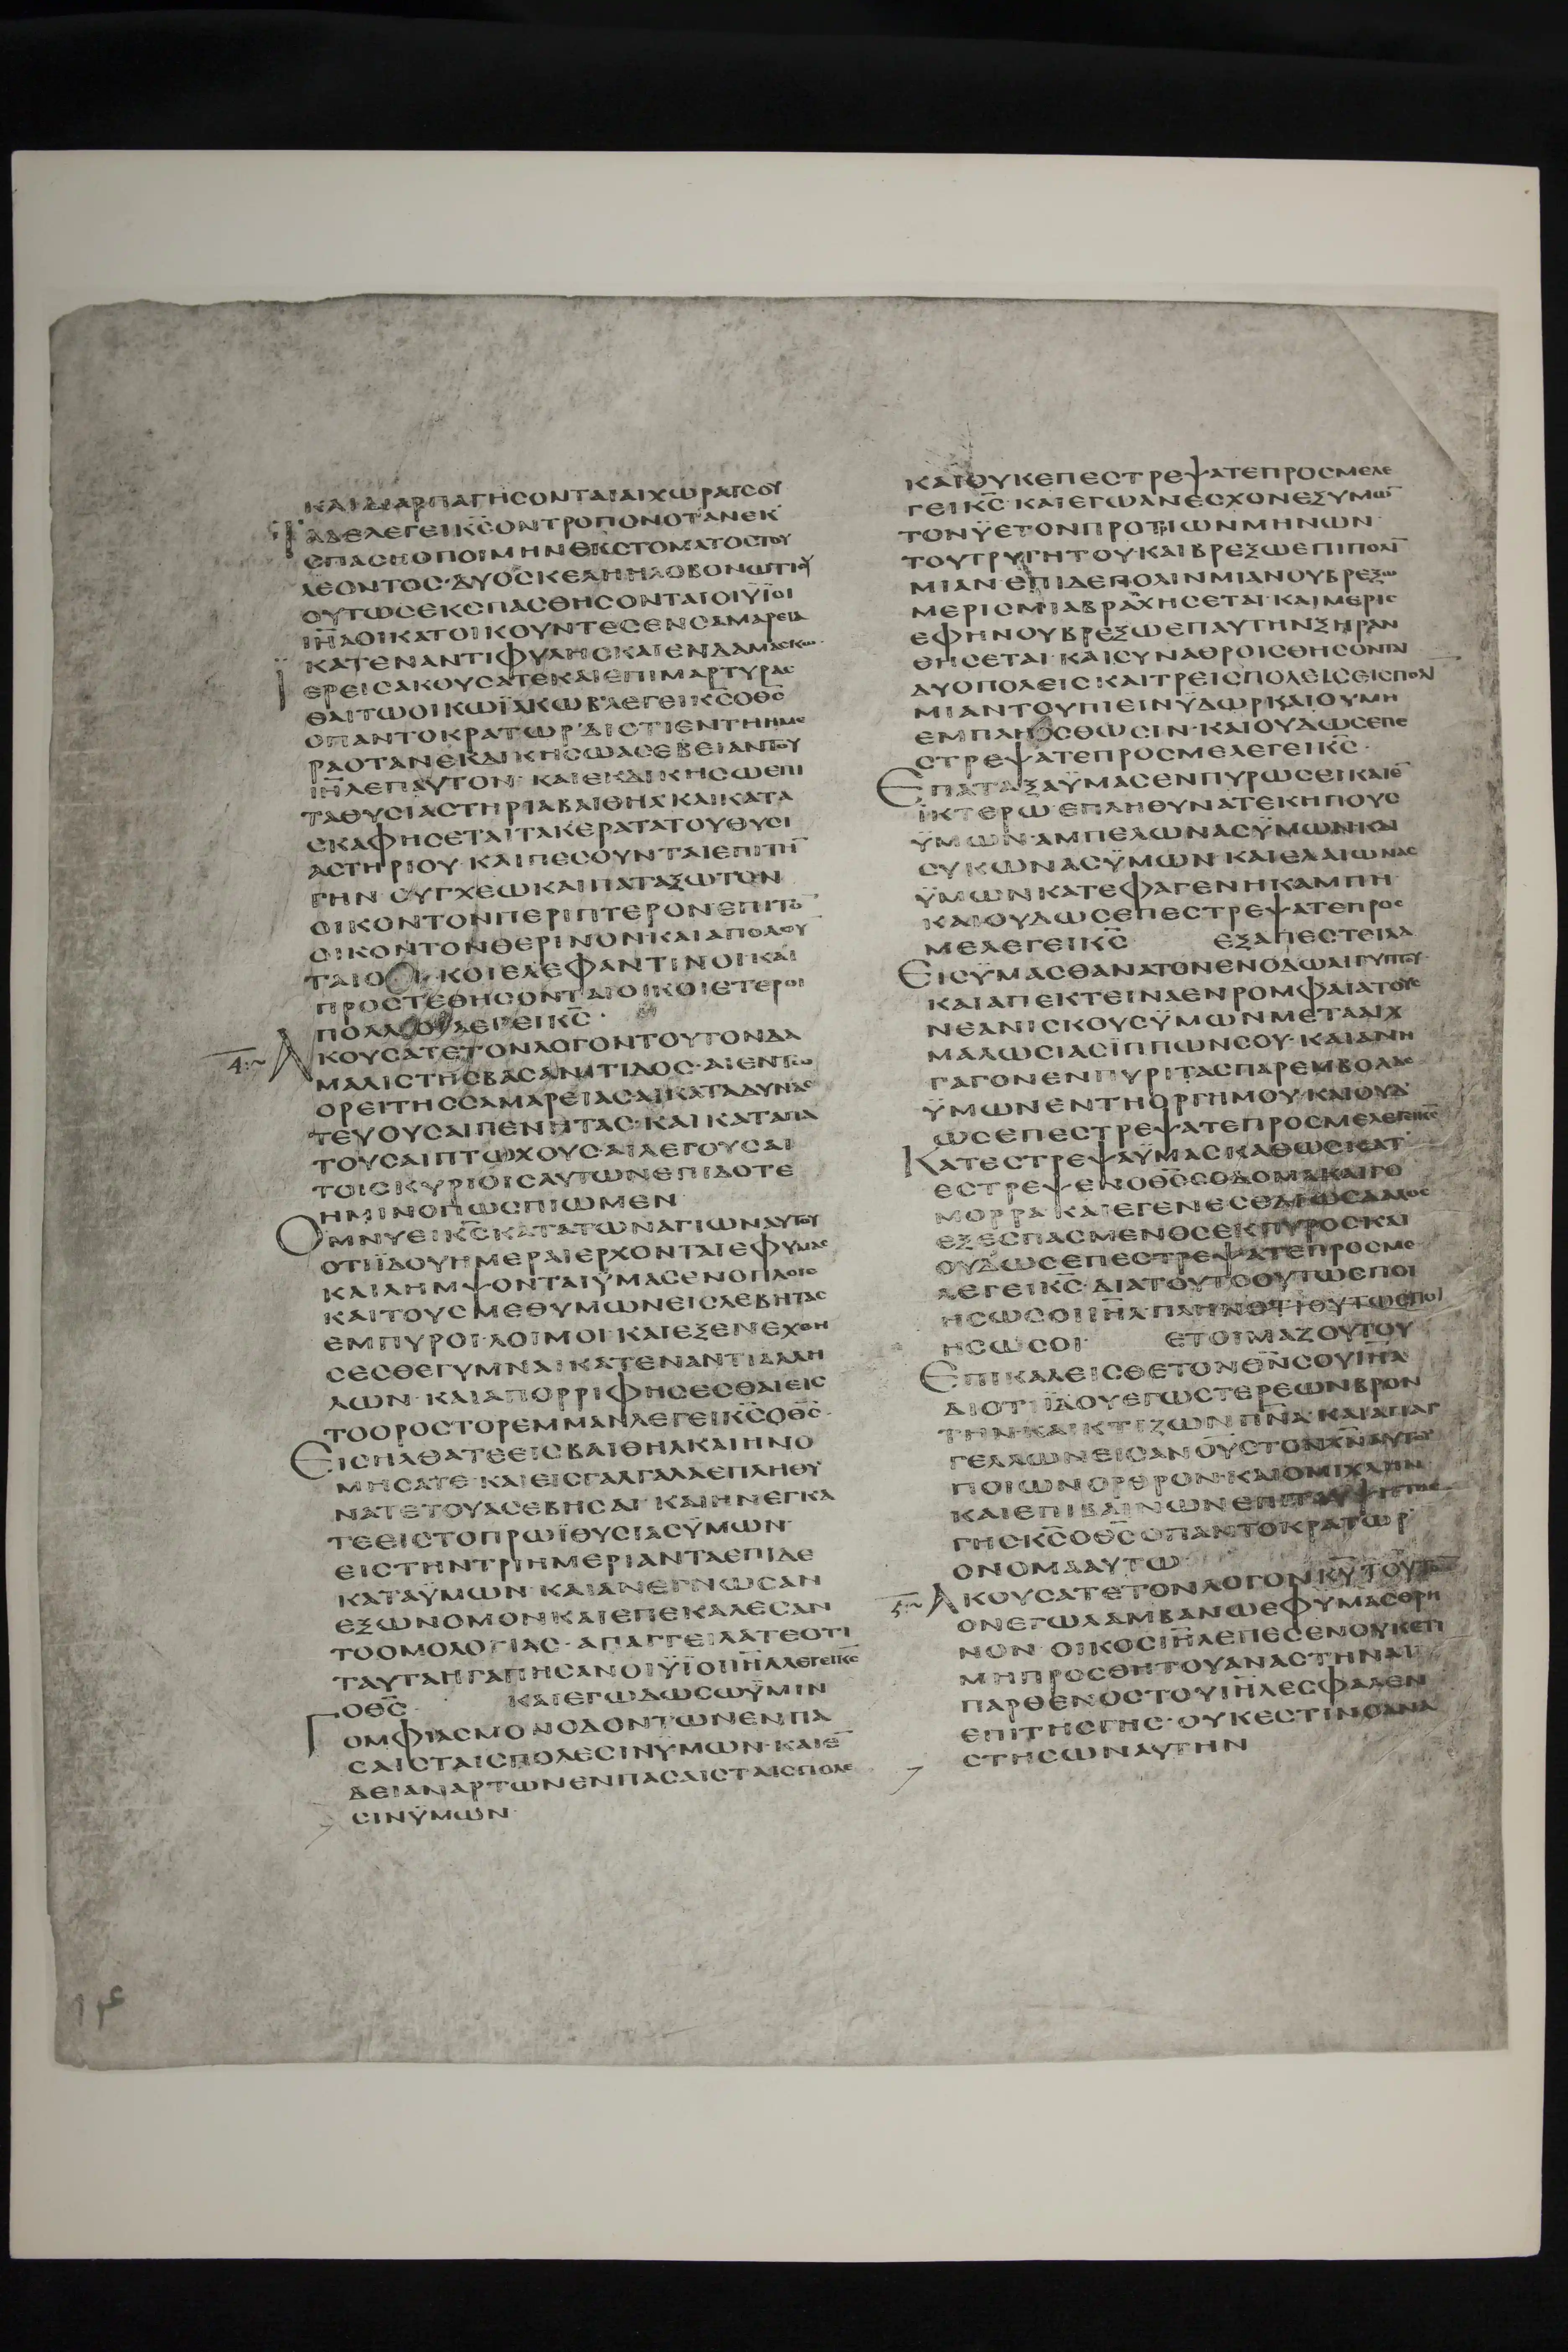 ΚΑΙΔΙΑΡΠΑΓΗCΟΝΤΑΙΑΙΧΩΡΑΙCΟΥ
ΑΔΕΛΕΓΕΙΚ̅C̅ΟΝΤΡΟΠΟΝΟΤΑΝΕΚ
CΠΑCΗΟΠΟΙΜΗΝΕΚCΤΟΜΑΤΟCΤΟΥ
ΛΕΟΝΤΟC·ΔΥΟCΚΕΛΗΗΛΟΒΟΝΩΤΙΟΥ
ΟΥΤΩCΕΚCΠΑCΘΗCΟΝΤΑΙΟΙΫΪΟΙ
Ι̅Η̅Λ̅ΟΙΚΑΤΟΙΚΟΥΝΤΕCΕΝCΑΜΑΡΕΙΑ
ΚΑΤΕΝΑΝΤΙΦΥΛΗCΚΑΙΕΝΔΑΜΑCΚΩ·
ΕΡΕΙCΑΚΟΥCΑΤΕΚΑΙΕΠΙΜΑΡΤΥΡΑC
ΘΑΙΤΩΟΙΚΩΪΑΚΩΒΛΕΓΕΙΚ̅C̅ΟΘ̅C̅
ΟΠΑΝΤΟΚΡΑΤΩΡΔΙΟΤΙΕΝΤΗΗΜΕ
ΡΑΟΤΑΝΕΚΔΙΚΗCΩΑCΕΒΕΙΑΝΤΟΥ
Ι̅Η̅Λ̅ΕΠΑΥΤΟΝ·ΚΑΙΕΚΔΙΚΗCΩΕΠΙ
ΤΑΘΥCΙΑCΤΗΡΙΑΒΑΙΘΗΛΚΑΙΚΑΤΑ
CΚΑΦΗCΕΤΑΙΤΑΚΕΡΑΤΑΤΟΥΘΥCΙ
ΑCΤΗΡΙΟΥ·ΚΑΙΠΕCΟΥΝΤΑΙΕΠΙΤΗ̅
ΓΗΝ·CΥΓΧΕΩΚΑΙΠΑΤΑΞΩΤΟΝ
ΟΙΚΟΝΤΟΝΠΕΡΙΠΤΕΡΟΝΕΠΙΤΟ̅
ΟΙΚΟΝΤΟΝΘΕΡΙΝΟΝ·ΚΑΙΑΠΟΛΟΥ
ΤΑΙΟΙΟΙΚΟΙΕΛΕΦΑΝΤΙΝΟΙΚΑΙ
ΠΡΟCΤΕΘΗCΟΝΤΑΙΟΙΚΟΙΕΤΕΡΟΙ
ΠΟΛΛΟΙΛΕΓΕΙΚ̅C̅·
ΑΚΟΥCΑΤΕΤΟΝΛΟΓΟΝΤΟΥΤΟΝΔΑ
ΜΑΛΙCΤΗCΒΑCΑΝΙΤΙΔΟC·ΑΙΕΝΤΩ
ΟΡΕΙΤΗCCΑΜΑΡΕΙΑCΑΙΚΑΤΑΔΥΝΑC
ΤΕΥΟΥCΑΙΠΕΝΗΤΑC·ΚΑΙΚΑΤΑΠΑ
ΤΟΥCΑΙΠΤΩΧΟΥC·ΑΙΛΕΓΟΥCΑΙ
ΤΟΙCΚΥΡΙΟΙCΑΥΤΩΝΕΠΙΔΟΤΕ
ΗΜΙΝΟΠΩCΠΙΩΜΕΝ
ΟΜΝΥΕΙΚ̅C̅ΚΑΤΑΤΩΝΑΓΙΩΝΑΥΤΟΥ
ΟΤΙΪΔΟΥΗΜΕΡΑΙΕΡΧΟΝΤΑΙΕΦΥΜΑC
ΚΑΙΛΗΜΨΟΝΤΑΙΫΜΑCΕΝΟΠΛΟΙC
ΚΑΙΤΟΥCΜΕΘΥΜΩΝΕΙCΛΕΒΗΤΑC
ΕΜΠΥΡΟΙ·ΛΟΙΜΟΙ·ΚΑΙΕΞΕΝΕΧΘΗ
CΕCΘΕΓΥΜΝΑΙΚΑΤΕΝΑΝΤΙΑΛΛΗ
ΛΩΝ·ΚΑΙΑΠΟΡΡΙΦΗCΕCΘΑΙΕΙC
ΤΟΟΡΟCΤΟΡΕΜΜΑΝΛΕΓΕΙΚ̅C̅ΟΘ̅C̅·
ΕΙCΗΛΘΑΤΕΕΙCΒΑΙΘΗΛΚΑΙΗΝΟ
ΜΗCΑΤΕ·ΚΑΙΕΙCΓΑΛΓΑΛΑΕΠΛΗΘΥ
ΝΑΤΕΤΟΥΑCΕΒΗCΑΙ·ΚΑΙΗΝΕΓΚΑ
ΤΕΕΙCΤΟΠΡΩΪΘΥCΙΑCΫΜΩΝ·
ΕΙCΤΗΝΤΡΙΗΜΕΡΙΑΝΤΑΕΠΙΔΕ
ΚΑΤΑΫΜΩΝ·ΚΑΙΑΝΕΓΝΩCΑΝ
ΕΞΩΝΟΜΟΝΚΑΙΕΠΕΚΑΛΕCΑΝ
ΤΟΟΜΟΛΟΓΙΑC·ΑΠΑΓΓΕΙΛΑΤΕΟΤΙ
ΤΑΥΤΑΗΓΑΠΗCΑΝΟΙΫΪΟΙΙ̅Η̅Λ̅ΛΕΓΕΙΚ̅C̅
ΟΘ̅C̅ ΚΑΙΕΓΩΔΩCΩΫΜΙΝ
ΓΟΜΦΙΑCΜΟΝΟΔΟΝΤΩΝΕΝΠΑ
CΑΙCΤΑΙCΠΟΛΕCΙΝΫΜΩΝ·ΚΑΙΕ̅
ΔΕΙΑΝΑΡΤΩΝΕΝΠΑCΑΙCΤΑΙCΠΟΛΕ
CΙΝΫΜΩΝ·
ΚΑΙΟΥΚΕΠΕCΤΡΕΨΑΤΕΠΡΟCΜΕΛΕ
ΓΕΙΚ̅C̅·ΚΑΙΕΓΩΑΝΕCΧΟΝΕΞΥΜΩ̅
ΤΟΝΫΕΤΟΝΠΡΟΤΡΙΩΝΜΗΝΩΝ
ΤΟΥΤΡΥΓΗΤΟΥ·ΚΑΙΒΡΕΞΩΕΠΙΠΟΛΙ̅
ΜΙΑΝΕΠΙΔΕΠΟΛΙΝΜΙΑΝΟΥΒΡΕΞΩ
ΜΕΡΙCΜΙΑΒΡΑΧΗCΕΤΑΙ·ΚΑΙΜΕΡΙC
ΕΦΗΝΟΥΒΡΕΞΩΕΠΑΥΤΗΝΞΗΡΑΝ
ΘΗCΕΤΑΙ·ΚΑΙCΥΝΑΘΡΟΙCΘΗCΟΝΤΑΙ
ΔΥΟΠΟΛΕΙCΚΑΙΤΡΕΙCΠΟΛΕΙCΕΙCΠΟΛΙ̅
ΜΙΑΝΤΟΥΠΙΕΙΝΫΔΩΡΚΑΙΟΥΜΗ
ΕΜΠΛΗCΘΩCΙΝ·ΚΑΙΟΥΔΩCΕΠΕ
CΤΡΕΨΑΤΕΠΡΟCΜΕΛΕΓΕΙΚ̅C̅·
ΕΠΑΤΑΞΑΫΜΑCΕΝΠΥΡΩCΕΙΚΑΙΕ̅
ΪΚΤΕΡΩ·ΕΠΛΗΘΥΝΑΤΕΚΗΠΟΥC
ΫΜΩΝ·ΑΜΠΕΛΩΝΑCΫΜΩΝΚΑΙ
CΥΚΩΝΑCΫΜΩΝ·ΚΑΙΕΛΑΙΩΝΑC
ΫΜΩΝΚΑΤΕΦΑΓΕΝΗΚΑΜΠΗ·
ΚΑΙΟΥΔΩCΕΠΕCΤΡΕΨΑΤΕΠΡΟC
ΜΕΛΕΓΕΙΚ̅C̅ ΕΞΑΠΕCΤΕΙΛΑ
ΕΙCΫΜΑCΘΑΝΑΤΟΝΕΝΟΔΩΑΙΓΥΠΤΟΥ·
ΚΑΙΑΠΕΚΤΕΙΝΑΕΝΡΟΜΦΑΙΑΤΟΥC
ΝΕΑΝΙCΚΟΥCΫΜΩΝΜΕΤΑΑΙΧ
ΜΑΛΩCΙΑCΪΠΠΩΝCΟΥ·ΚΑΙΑΝΗ
ΓΑΓΟΝΕΝΠΥΡΙΤΑCΠΑΡΕΜΒΟΛΑC
ΫΜΩΝΕΝΤΗΟΡΓΗΜΟΥ·ΚΑΙΟΥΔ
ΩCΕΠΕCΤΡΕΨΑΤΕΠΡΟCΜΕΛΕΓΕΙΚ̅C̅
ΚΑΤΕCΤΡΕΨΑΫΜΑCΚΑΘΩCΚΑΤ
ΕCΤΡΕΨΕΝΟΘ̅C̅CΟΔΟΜΑΚΑΙΓΟ
ΜΟΡΡΑ·ΚΑΙΕΓΕΝΕCΘΑΙΩCΔΑΛΟC
ΕΞΕCΠΑCΜΕΝΟCΕΚΠΥΡΟCΚΑΙ
ΟΥΔΩCΕΠΕCΤΡΕΨΑΤΕΠΡΟCΜΕ
ΛΕΓΕΙΚ̅C̅·ΔΙΑΤΟΥΤΟΟΥΤΩΕΠΟΙ
ΗCΩCΟΙΙ̅Η̅Λ̅ΠΛΗΝΟΤΙΟΥΤΩCΠΟΙ
ΗCΩCΟΙ· ΕΤΟΙΜΑΖΟΥΤΟΥ
ΕΠΙΚΑΛΕΙCΘΕΤΟΝΘ̅Ν̅CΟΥΙ̅Η̅Λ̅
ΔΙΟΤΙΪΔΟΥΕΓΩCΤΕΡΕΩΝΒΡΟΝ
ΤΗΝ·ΚΑΙΚΤΙΖΩΝΠ̅Ν̅Α̅·ΚΑΙΑΠΑΓ
ΓΕΛΛΩΝΕΙCΑΝΟΥCΤΟΝΧ̅Ν̅ΑΥΤΟΥ
ΠΟΙΩΝΟΡΘΡΟΝ·ΚΑΙΟΜΙΧΛΗΝ·
ΚΑΙΕΠΙΒΑΙΝΩΝΕΠΙΤΑΥΨΗΤΗC
ΓΗCΚ̅C̅ΟΘ̅C̅ΟΠΑΝΤΟΚΡΑΤΩΡ
ΟΝΟΜΑΑΥΤΩ·
ΑΚΟΥCΑΤΕΤΟΝΛΟΓΟΝΚ̅Υ̅ΤΟΥΤΟ̅
ΟΝΕΓΩΛΑΜΒΑΝΩΕΦΥΜΑCΘΡΗ
ΝΟΝ·ΟΙΚΟCΙ̅Η̅Λ̅ΕΠΕCΕΝΟΥΚΕΤΙ
ΜΗΠΡΟCΘΗΤΟΥΑΝΑCΤΗΝΑΙ·
ΠΑΡΘΕΝΟCΤΟΥΙ̅Η̅Λ̅ΕCΦΑΛΕΝ
ΕΠΙΤΗCΓΗC·ΟΥΚΕCΤΙΝΟΑΝΑ
CΤΗCΩΝΑΥΤΗΝ